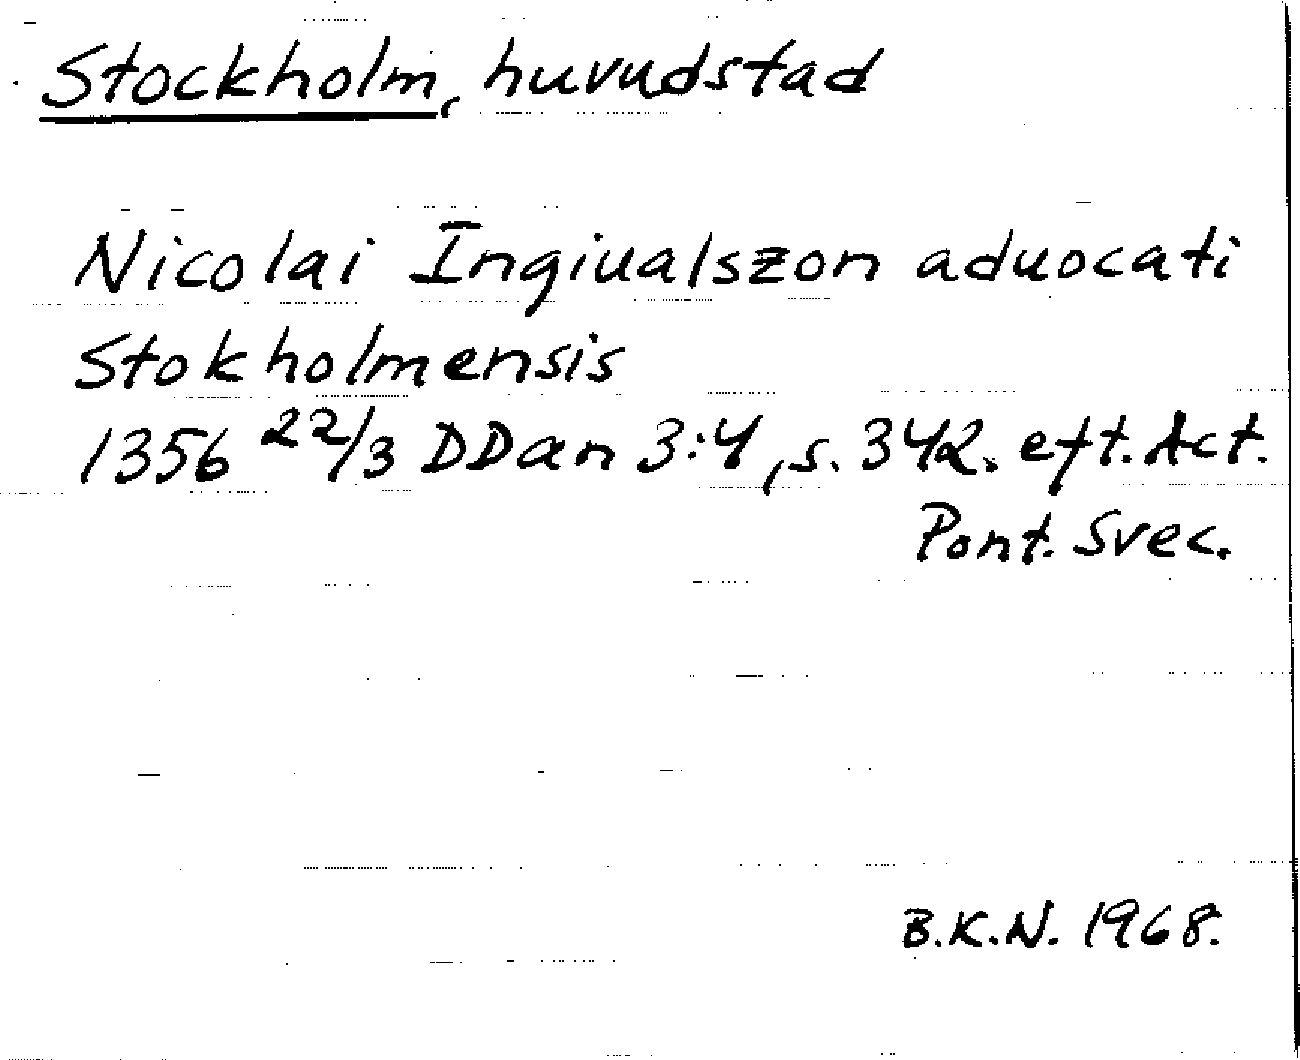 Stockholm, huvudstad
Nicolai Ingiualszon aduocati
Stokholmensis
1356 22/3 DDan 3:4, s. 342. eft. Act.
Pont. Svec.
B.K.N. 1968.